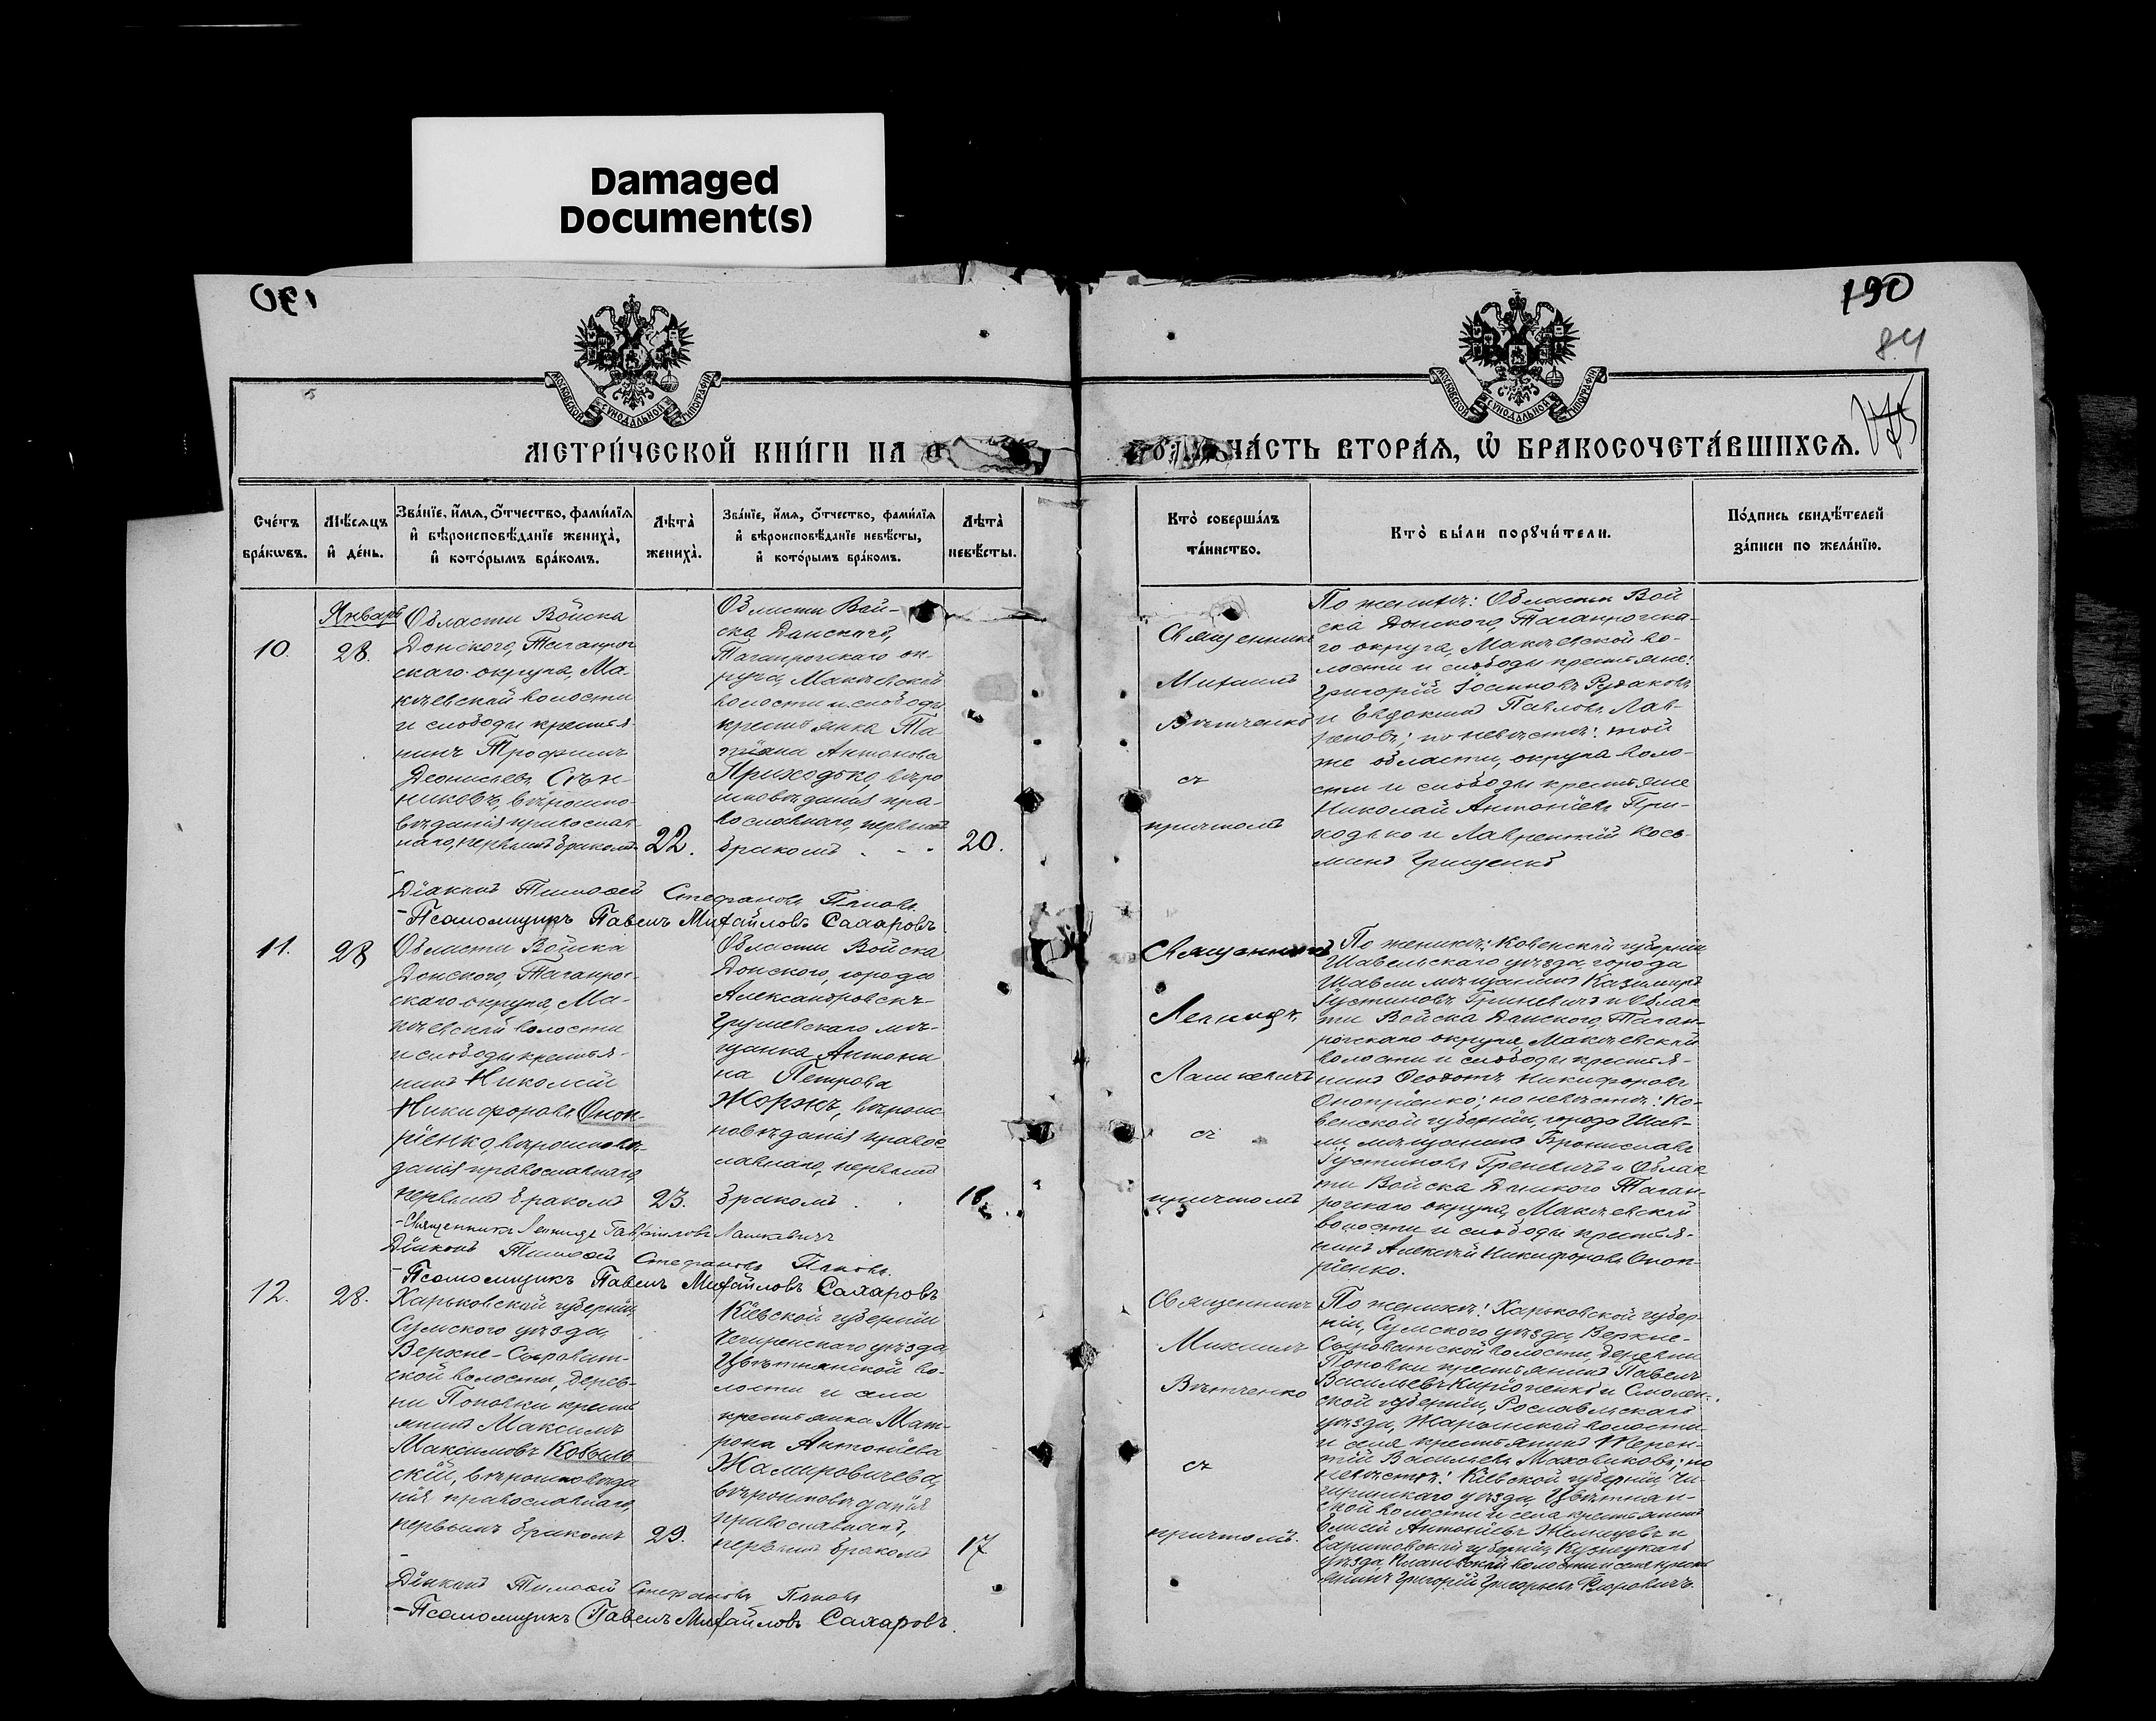 Damaged
Document(s)
190
84
МОСКОВСКОЙ СѴНОДАЛЬНОЙ ТИПОГРАФІИ
МОСКОВСКОЙ СѴНОДАЛЬНОЙ ТИПОГРАФІИ
МЕТРИ́ЧЕСКОЙ КНИ́ГИ НА
ЧА́СТЬ ВТОРА́Я, Ѡ҆ БРАКОСОЧЕТА́ВШИХСЯ.
Сче́тъ
бра́кωвъ.
Мѣ́сяцъ
и҆ де́нь.
Зва́нїе, и҆́мя, о҆́тчество, фами́лїя
и҆ вѣроисповѣ́данїе жениха̀,
и҆ кото́рымъ бра́комъ.
Лѣта̀
жениха̀.
Зва́нїе, и҆́мя, о҆́тчество, фами́лїя
и҆ вѣроисповѣ́данїе невѣ́сты,
и҆ кото́рымъ бра́комъ.
Лѣта̀
невѣ́сты.
Кто̀ соверша́лъ
та́инство.
Кто̀ бы́ли порꙋчи́тели.
По́дпись свидѣ́телей
за́писи по жела́нїю.
10.
Январь
28.
Области Войска
Донского, Таганрог
скаго округа, Ма-
кѣевской волости
и слободы крестья-
нинъ Трофимъ
Деонисьевъ Сѣн-
никовъ, вѣроиспо-
вѣданія православ-
наго, первымъ бракомъ
22.
Области Вой-
ска Донского,
Таганрогскаго ок-
руга, Макѣевской
волости и слободы
крестьянка Та-
тіана Антонова
Приходько, вѣро
исповѣданія пра-
вославнаго, первымъ
бракомъ
20.
Священникъ
Михаилъ
Вѣтченко
съ
причтомъ
По женихѣ: Области Вой
ска Донского, Таганрогска-
го округа, Макѣевской во-
лости и слободы крестьяне:
Григорій Іоанновъ Рудаковъ
и Евдокимъ Павловъ Лав-
реновъ; по невѣстѣ: той
же области, округа воло-
сти и слободы крестьяне
Николай Антоніевъ При-
ходько и Лаврентій Кось-
минъ Грищенко
Діаконъ Тимофей Стефановъ Поповъ
Псаломщикъ Павелъ Михайловъ Сахаровъ
11.
28
Области Войска
Донского, Таганрог-
скаго округа, Ма-
кѣевской волости
и слободы крестья-
нинъ Николай
Никифоровъ Оноп-
ріенко, вѣроисповѣ-
данія православнаго,
первымъ бракомъ
23.
Области Войска
Донского, города
Александровскъ-
Грушевскаго мѣ-
щанка Антони
на Петрова
Жоржъ, вѣроис
повѣданія правос
лавнаго, первымъ
бракомъ
18.
Священникъ
Леонидъ
Лашкевичъ
съ
причтомъ
По женихѣ: Ковенской губерніи
Шавельскаго уѣзда, города
Шавли мѣщанинъ Казимиръ
Іустиновъ Гриневичъ и Облас
ти Войска Донского, Таган-
рогскаго округа, Макѣевской
волости и слободы крестья-
нинъ Ѳеодотъ Никифоровъ
Онопріенко; по невѣстѣ: Ко-
венской губерніи, города Шав-
ли, мѣщанинъ Брониславъ
Іустиновъ Греневичъ и Облас
ти Войска Донского Таган-
рогскаго округа, Макѣевской
волости и слободы крестья-
нинъ Алексѣй Никифоровъ Оноп-
ріенко.
Священникъ Леонидъ Гавріиловъ Лашкевичъ
Діаконъ Тимофей Стефановъ Поповъ.
Псаломщикъ Павелъ Михайловъ Сахаровъ
12.
28.
Харьковской губерніи,
Сумского уѣзда,
Верхне-Сыроват-
ской волости, дерев-
ни Поповки кресть
янинъ Максимъ
Максимовъ Ковыль
скій, вѣроисповѣда
нія православнаго,
первымъ бракомъ
29.
Кіевской губерніи
Чигиренскаго уѣзда,
Цвѣтнянской во-
лости и села
крестьянка Мат-
рона Антоніева
вѣроисповѣданія
православнаго,
первымъ бракомъ
17
Священникъ
Михаилъ
Вѣтченко
съ
причтомъ.
По женихѣ: Харьковской губер-
ніи, Сумского уѣзда, Верхне-
Сыроватской волости, деревни
Поповки крестьянинъ Павелъ
Васильевъ Кириченко и Смолен-
ской губерніи, Рославльскаго
уѣзда, Жарынской волости
и села крестьянинъ Терен-
тій Васильевъ Маховиковъ; по
невѣстѣ: Кіевской губерніи, Чи-
гиринскаго уѣзда, Цвѣтнян-
ской волости и села крестьянинъ
Елисей Антоніевъ и
Саратовской губерніи, Кузнецкаго
уѣзда, волости и села кресть
янинъ Григорій Григорьевъ
Діаконъ Тимофей Стефановъ Поповъ
Псаломщикъ Павелъ Михайловъ Сахаровъ.